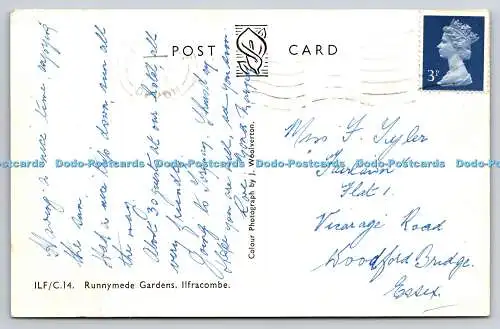 POST CARD
3P
Having a nice time, enjoying
the sun.
Had a nice trip down, sun all
the way.
About 30 guests at our hotel, all
very friendly.
Going to Torquay Thursday
Hope you are well, see you soon
Love
Colour Photograph by J. Woolverton.
Miss F. Tyler
Flat 1.
Vicarage Road
Woodford Bridge.
Essex.
Dodo-Postcards Dodo-Postcards Dodo-Postcards Dodo-Postcards Dodo-Postcards Dodo-Postcards
ILF/C.14. Runnymede Gardens, Ilfracombe.